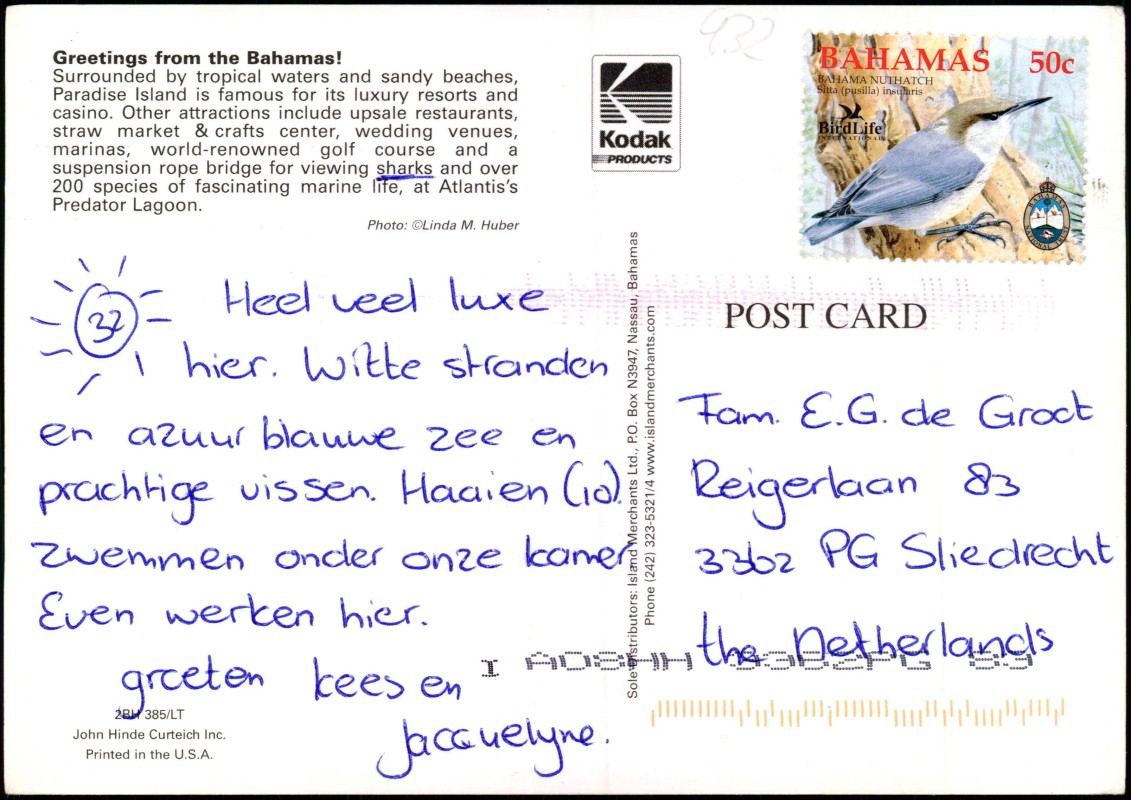 432
Greetings from the Bahamas!
Surrounded by tropical waters and sandy beaches,
Paradise Island is famous for its luxury resorts and
casino. Other attractions include upsale restaurants,
straw market & crafts center, wedding venues,
marinas, world-renowned golf course and a
suspension rope bridge for viewing sharks and over
200 species of fascinating marine life, at Atlantis's
Predator Lagoon.
Photo: ©Linda M. Huber
Kodak
PRODUCTS
BAHAMAS 50c
BAHAMA NUTHATCH
Sitta (pusilla) insularis
BirdLife
INTERNATIONAL
BAHAMAS
NATIONAL TRUST
32
Heel veel luxe
hier. Witte stranden
en azuur blauwe zee en
prachtige vissen. Haaien (10).
zwemmen onder onze kamer
Even werken hier.
groeten kees en
Jacquelyne.
2BH 385/LT
John Hinde Curteich Inc.
Printed in the U.S.A.
Sole Distributors: Island Merchants Ltd., P.O. Box N3947, Nassau, Bahamas
Phone (242) 323-5321/4 www.islandmerchants.com
POST CARD
Fam. E.G. de Groot
Reigerlaan 83
3362 PG Sliedrecht
the Netherlands
3362PG 83